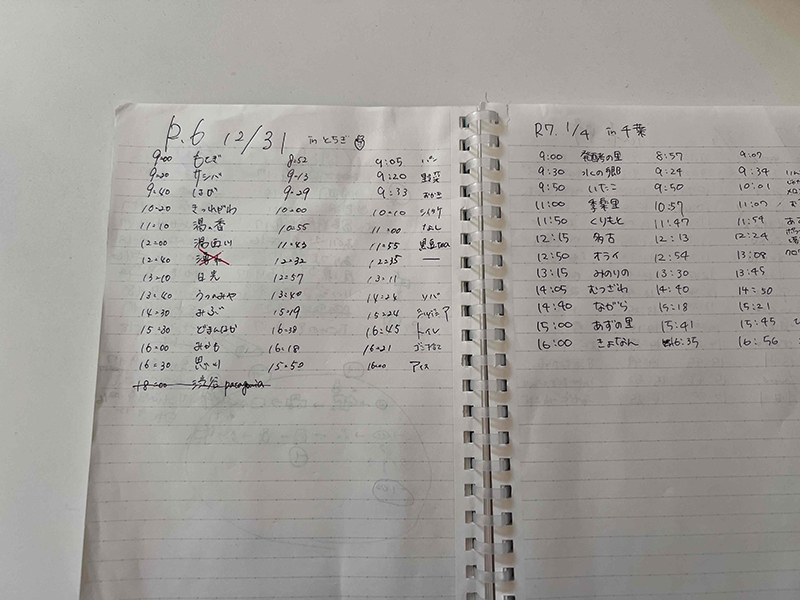 R.6 12/31 in とちぎ
9:00 もてぎ 8:52 9:05 パン
9:20 サシバ 9:13 9:20 野菜
9:40 はが 9:29 9:33 おかき
10:20 きつれがわ 10:00 10:10 シイタケ
11:10 湯の香 10:55 11:00
12:00 湯西川 11:43 11:55
12:40 12:32 12:35 ―
13:10 日光 12:57 13:11
13:40 うつのみや 13:40 14:24
14:30 みぶ 15:19 15:24
15:30 どまんなか 16:38 16:45 トイレ
16:00 みかも 16:18 16:21
16:30 思川 15:50 16:00 アイス
18:00 渋谷 patagonia
R7. 1/4 in 千葉
9:00 発酵の里 8:57 9:07
9:30 水の郷 9:24 9:34
9:50 いたこ 9:50 10:01
11:00 季楽里 10:57 11:07
11:50 くりもと 11:47 11:59
12:15 多古 12:13 12:24
12:50 オライ 12:54 13:08
13:15 みのりの 13:30 13:45
14:05 むつざわ 14:40 14:50
14:40 ながら 15:18 15:21
15:00 あずの里 15:41 15:45
16:00 きょなん 16:35 16:56